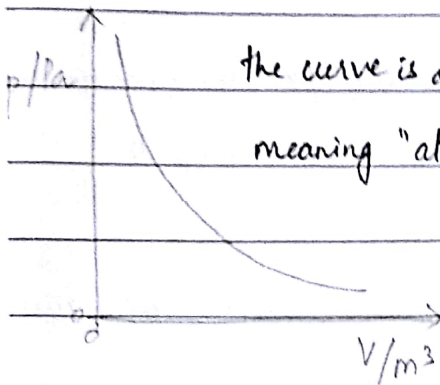 p/Pa
the curve is
meaning "al
0
0
V/m³